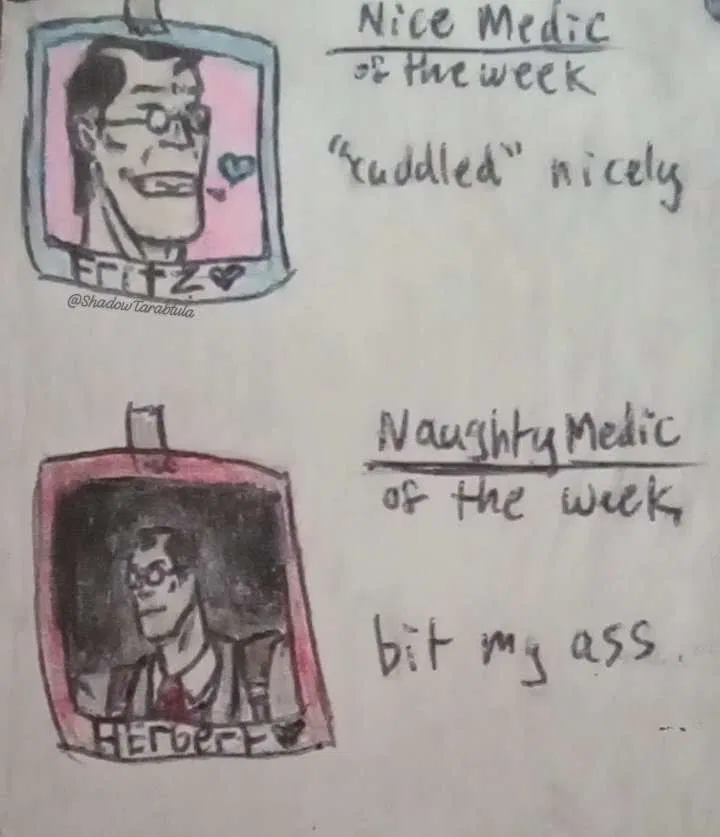 Nice Medic
of the week
"cuddled" nicely
Fritz
@ShadowTarabtula
Naughty Medic
of the week
bit my ass.
HErberT